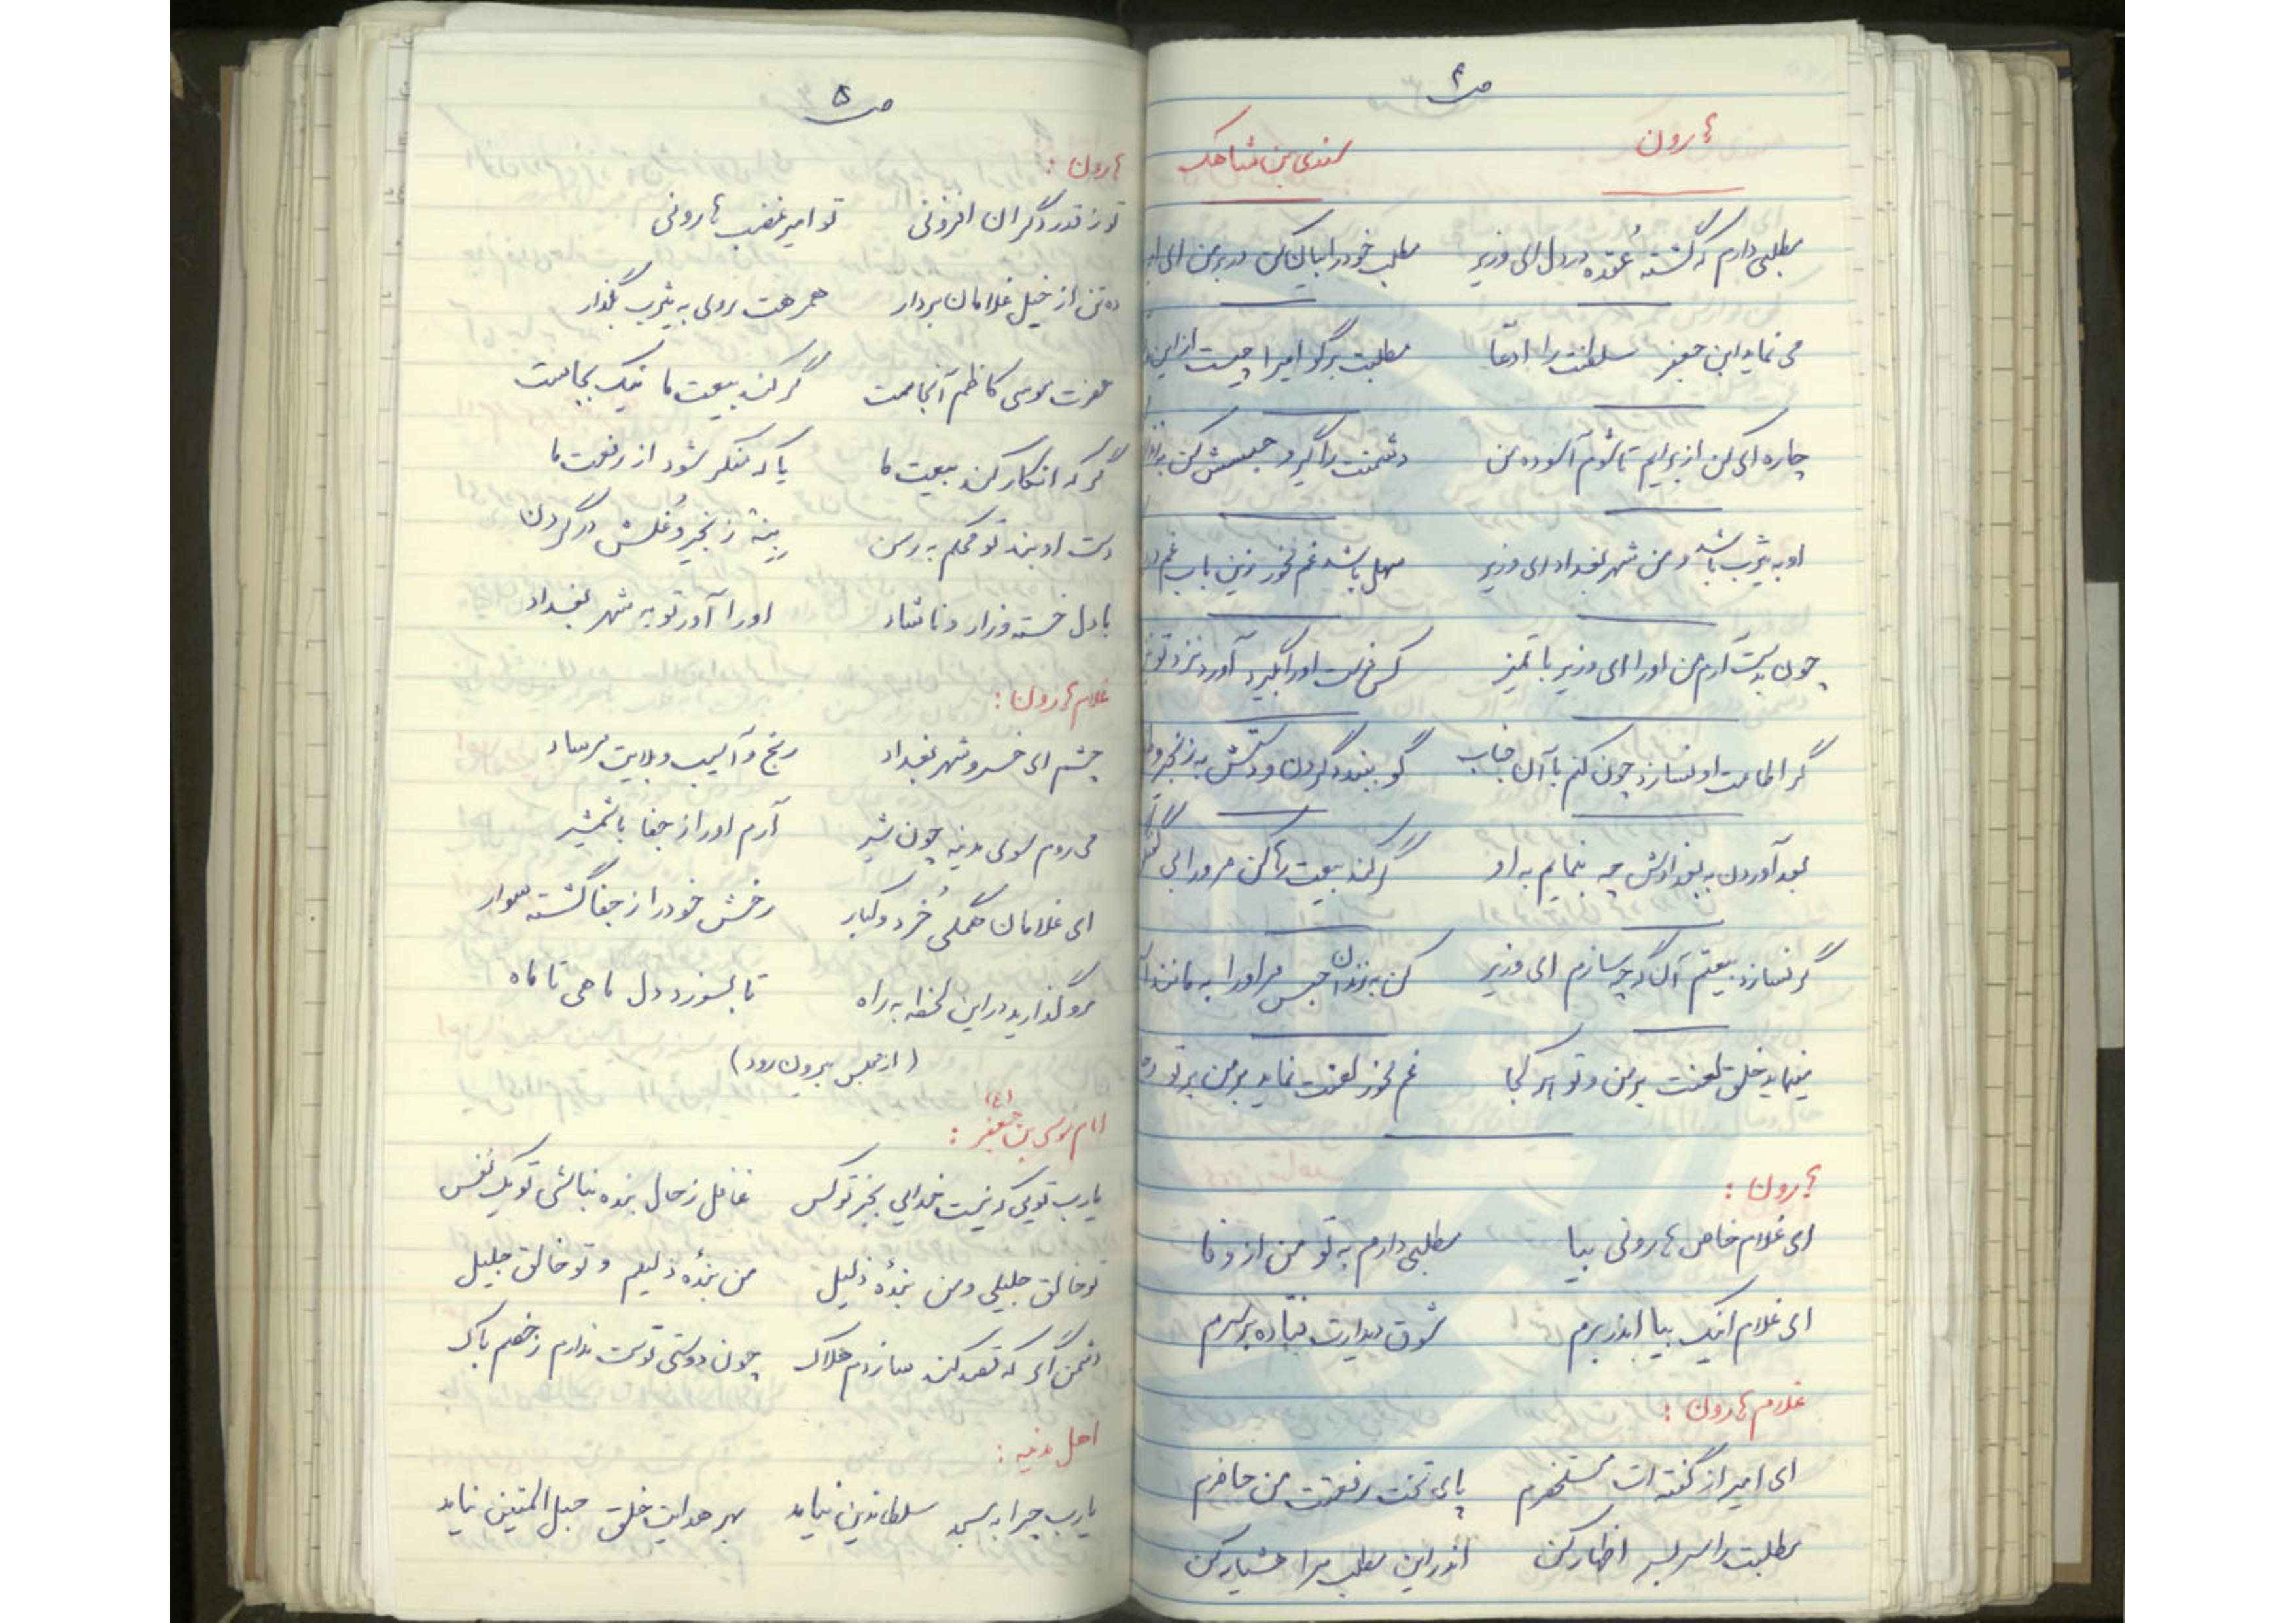 ص ۴
هارون
سندی بن شاهک
مطلبی دارم که گشته عُقده در دل ای وزیر مطلب خود را بیان کن در بر من ای
می نماید این جعفر سلطنت را ادعّا مطلبت برگو امیرا چیست از این
چاره ای کن از برایم تا شوم آسوده من دشمنت را گیر و حبسش کن
او به یثرب باشد و من شهر بغداد ای وزیر سهل باشد غم مخور زین باب غم
چون بدست آرم من او را ای وزیر با تمیز کس فرست او را بگیرد آورد نزد تو
گر اطاعت او نسازد چون کنم با آن جناب گو ببندد گردن و دستش به زنجیر و
بعد آوردن به بغدادش چه بنمایم به او گر کند بیعت رها کن مرورا بی
گر نسازد بیعتم آن گه چه سازم ای وزیر کن به زندان حبس مر او را به مانند
مینماید خلق لعنت بر من و تو هر کجا غم مخور لعنت نماید بر من بر تو
هارون :
ای غلام خاص هارونی بیا مطلبی دارم به تو من از وفا
ای غلام اینک بیا اندر برم شوق دیدارت فتاده بر سرم
غلام هارون :
ای امیر از گفته ات مستحضرم پای تخت رفعتت من حاضرم
مطلبت را سر بسر اظهار کن اندر این مطلب مرا هشیار کن
ص ۵
هارون :
تو ز قدر دگران افزونی تو امیر غضب هارونی
ده تن از خیل غلامان بردار همرهت روی به یثرب بگذار
حضرت موسی کاظم آنجاست گر کند بیعت ما نیک بجاست
گر که انکار کند بیعت ما یا که منکر شود از رفعت ما
دست او بند تو محکم به رسن زنجیر و غُلش در گردن
با دل خسته و زار و ناشاد او را آور تو به شهر بغداد
غلام هارون :
چشم ای خسرو شهر بغداد رنج و آسیب و بلایت مرساد
می روم سوی مدینه چون شیر آرم او را از جفا با شمشیر
ای غلامان همگی خُرد و کبار رخش خود را از جفا گشته سوار
رو گذارید در این لحظه به راه تا بسوزد دل ماهی تا ماه
(از مجلس بیرون رود)
امام موسی بن جعفر (ع) :
یارب تویی که نیست خدایی بجز تو کس غافل ز حال بنده نباشی تو یک نَفس
تو خالق جلیلی و من بندهٔ ذلیل من بندهٔ ذلیلم و تو خالق جلیل
دشمن اگر که قصد کند سازدم هلاک چون دوستی توست ندارم ز خصم باک
اهل مدینه :
یارب چرا به مسجد سلطان دین نیامد بهر هدایت خلق حبل المتین نیامد